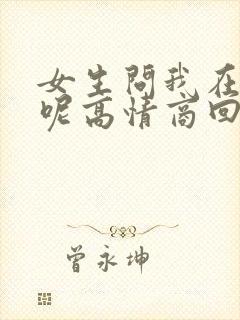 女生问我在
呢高情商回
曾永坤